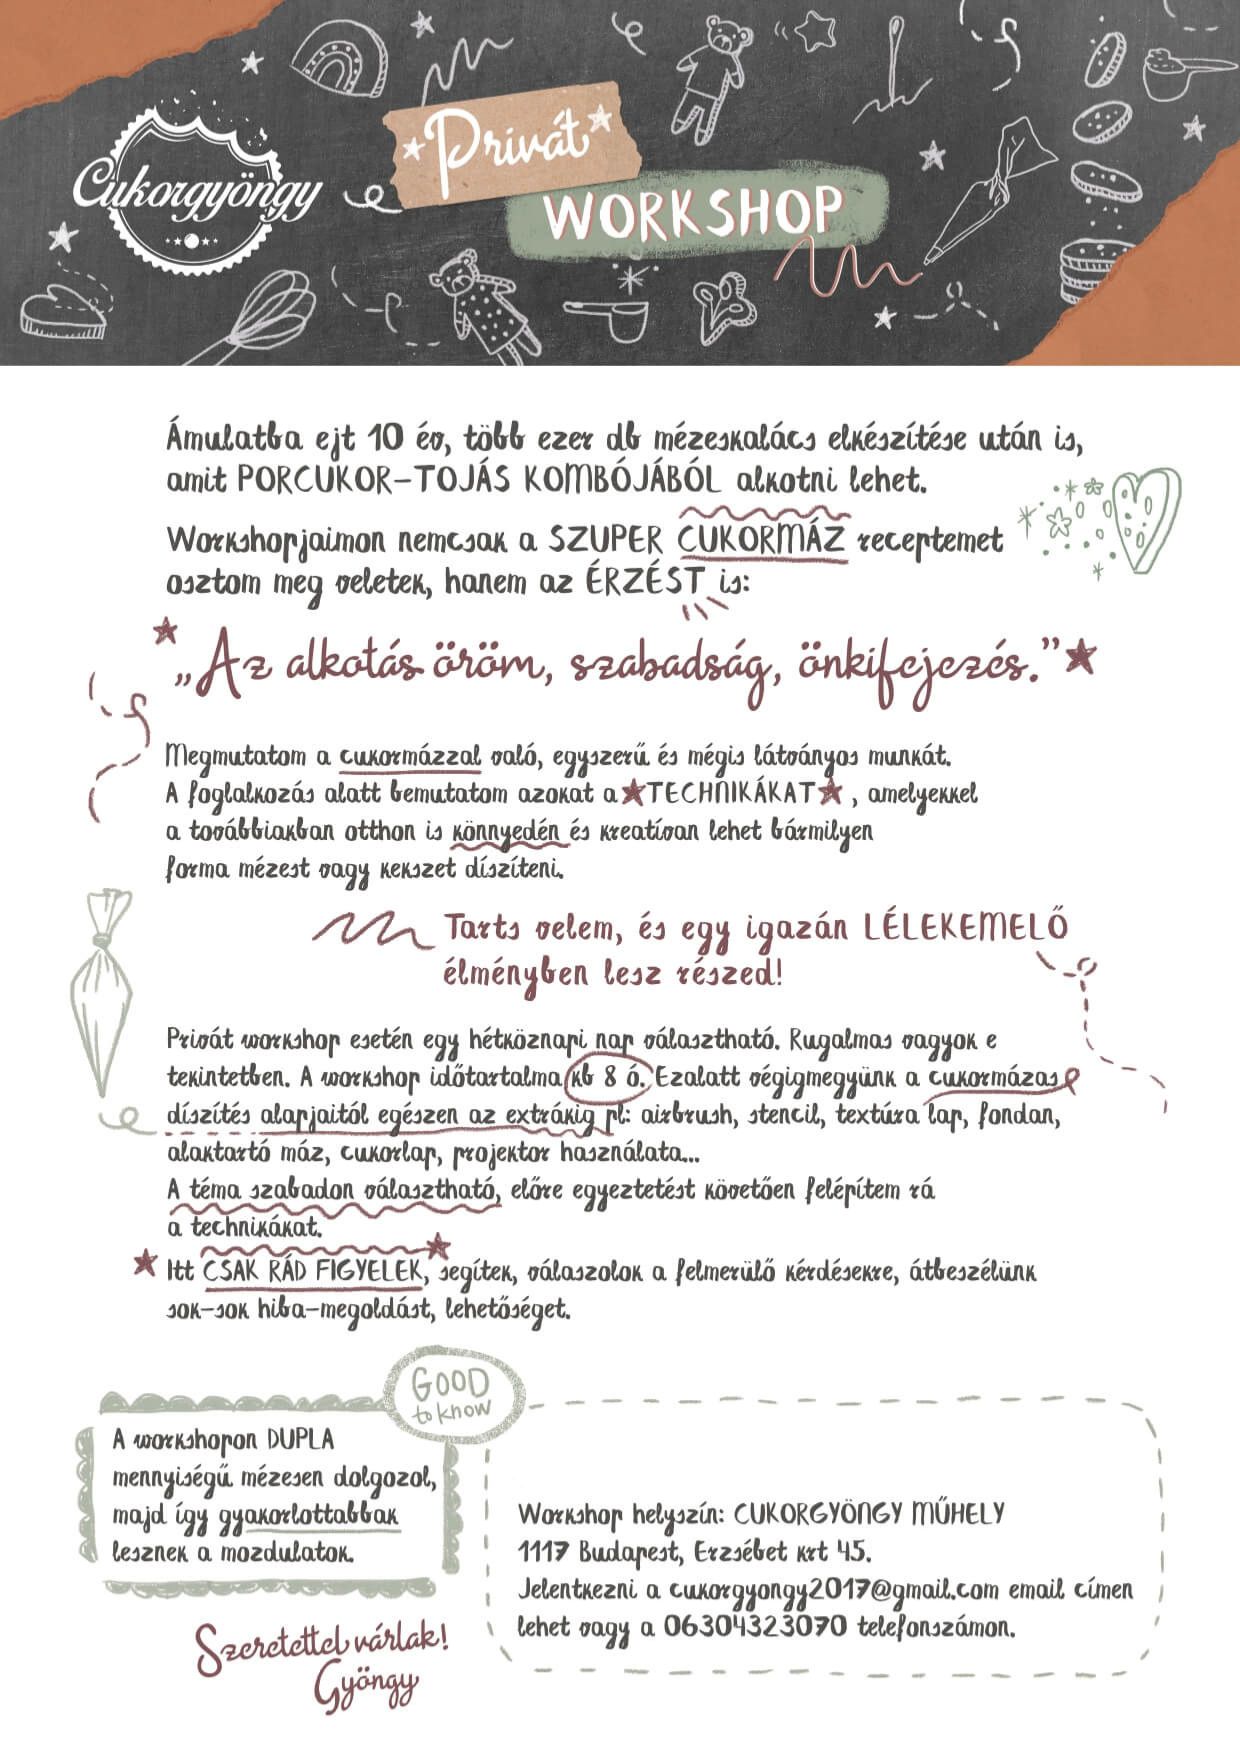 Cukorgyöngy
Privát
WORKSHOP
Ámulatba ejt 10 év, több ezer db mézeskalács elkészítése után is,
amit PORCUKOR-TOJÁS KOMBÓJÁBÓL alkotni lehet.
Workshopjaimon nemcsak a SZUPER CUKORMÁZ receptemet
osztom meg veletek, hanem az ÉRZÉST is:
„Az alkotás öröm, szabadság, önkifejezés.”
Megmutatom a cukormázzal való, egyszerű és mégis látványos munkát.
A foglalkozás alatt bemutatom azokat a TECHNIKÁKAT, amelyekkel
a továbbiakban otthon is könnyedén és kreatívan lehet bármilyen
forma mézest vagy kekszet díszíteni.
Tarts velem, és egy igazán LÉLEKEMELŐ
élményben lesz részed!
Privát workshop esetén egy hétköznapi nap választható. Rugalmas vagyok e
tekintetben. A workshop időtartalma kb 8 ó. Ezalatt végigmegyünk a cukormázas
díszítés alapjaitól egészen az extrákig pl: airbrush, stencil, textúra lap, fondan,
alaktartó máz, cukorlap, projektor használata...
A téma szabadon választható, előre egyeztetést követően felépítem rá
a technikákat.
Itt CSAK RÁD FIGYELEK, segítek, válaszolok a felmerülő kérdésekre, átbeszélünk
sok-sok hiba-megoldást, lehetőséget.
GOOD
to know
A workshopon DUPLA
mennyiségű mézesen dolgozol,
majd így gyakorlottabbak
lesznek a mozdulatok.
Workshop helyszín: CUKORGYÖNGY MŰHELY
1117 Budapest, Erzsébet krt 45.
Jelentkezni a cukorgyongy2017@gmail.com email címen
lehet vagy a 06304323070 telefonszámon.
Szeretettel várlak!
Gyöngy